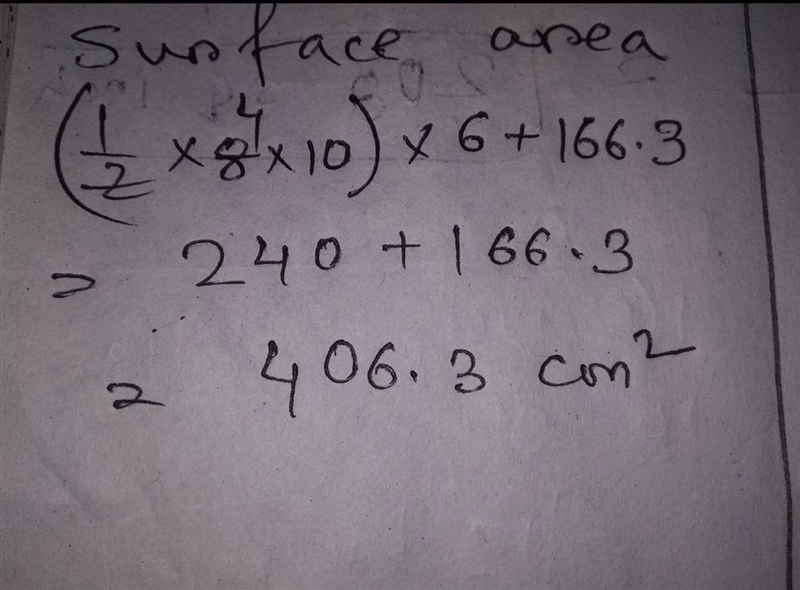 Surface area
(1/2 × 8 4 × 10) × 6 + 166.3
= 240 + 166.3
= 406.3 cm²